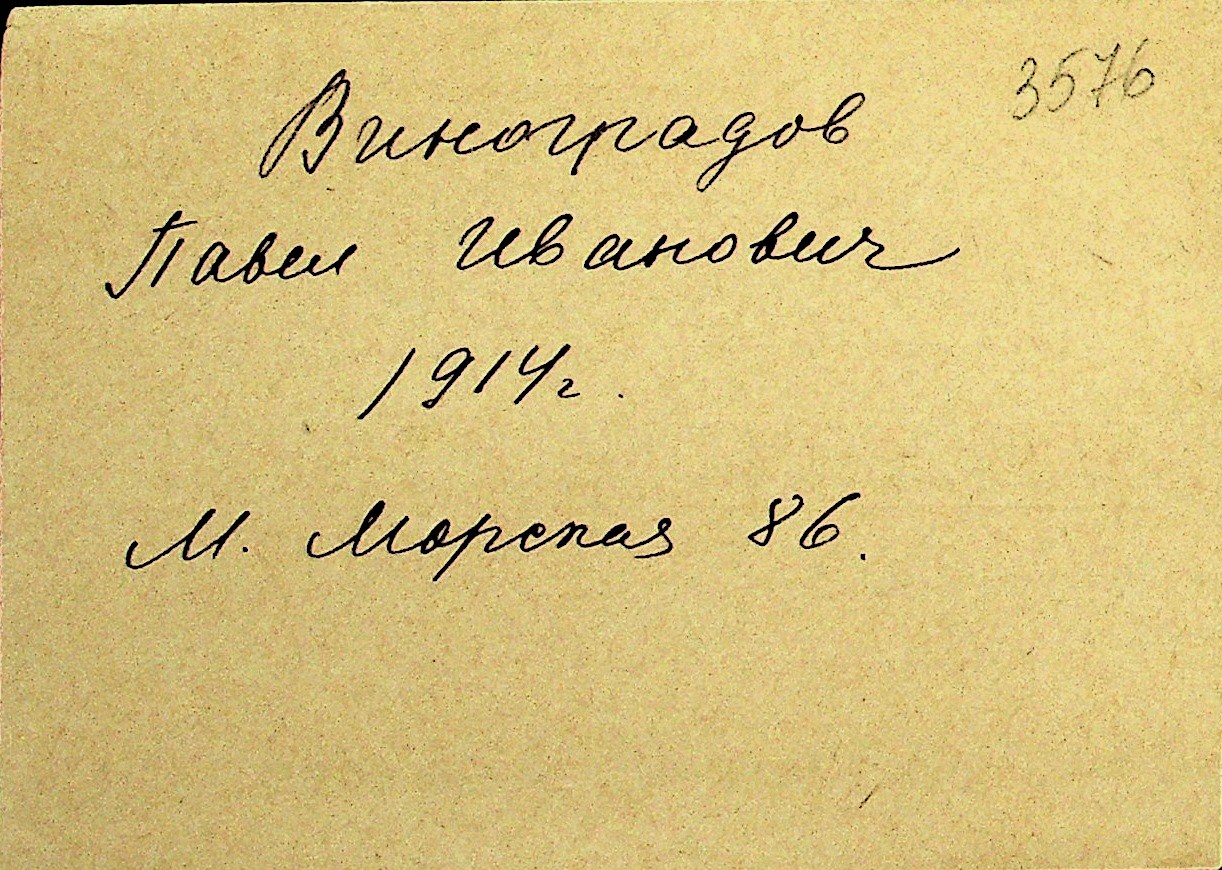 3576
Виноградов
Павел Иванович
1914г.
М. Морская 86.